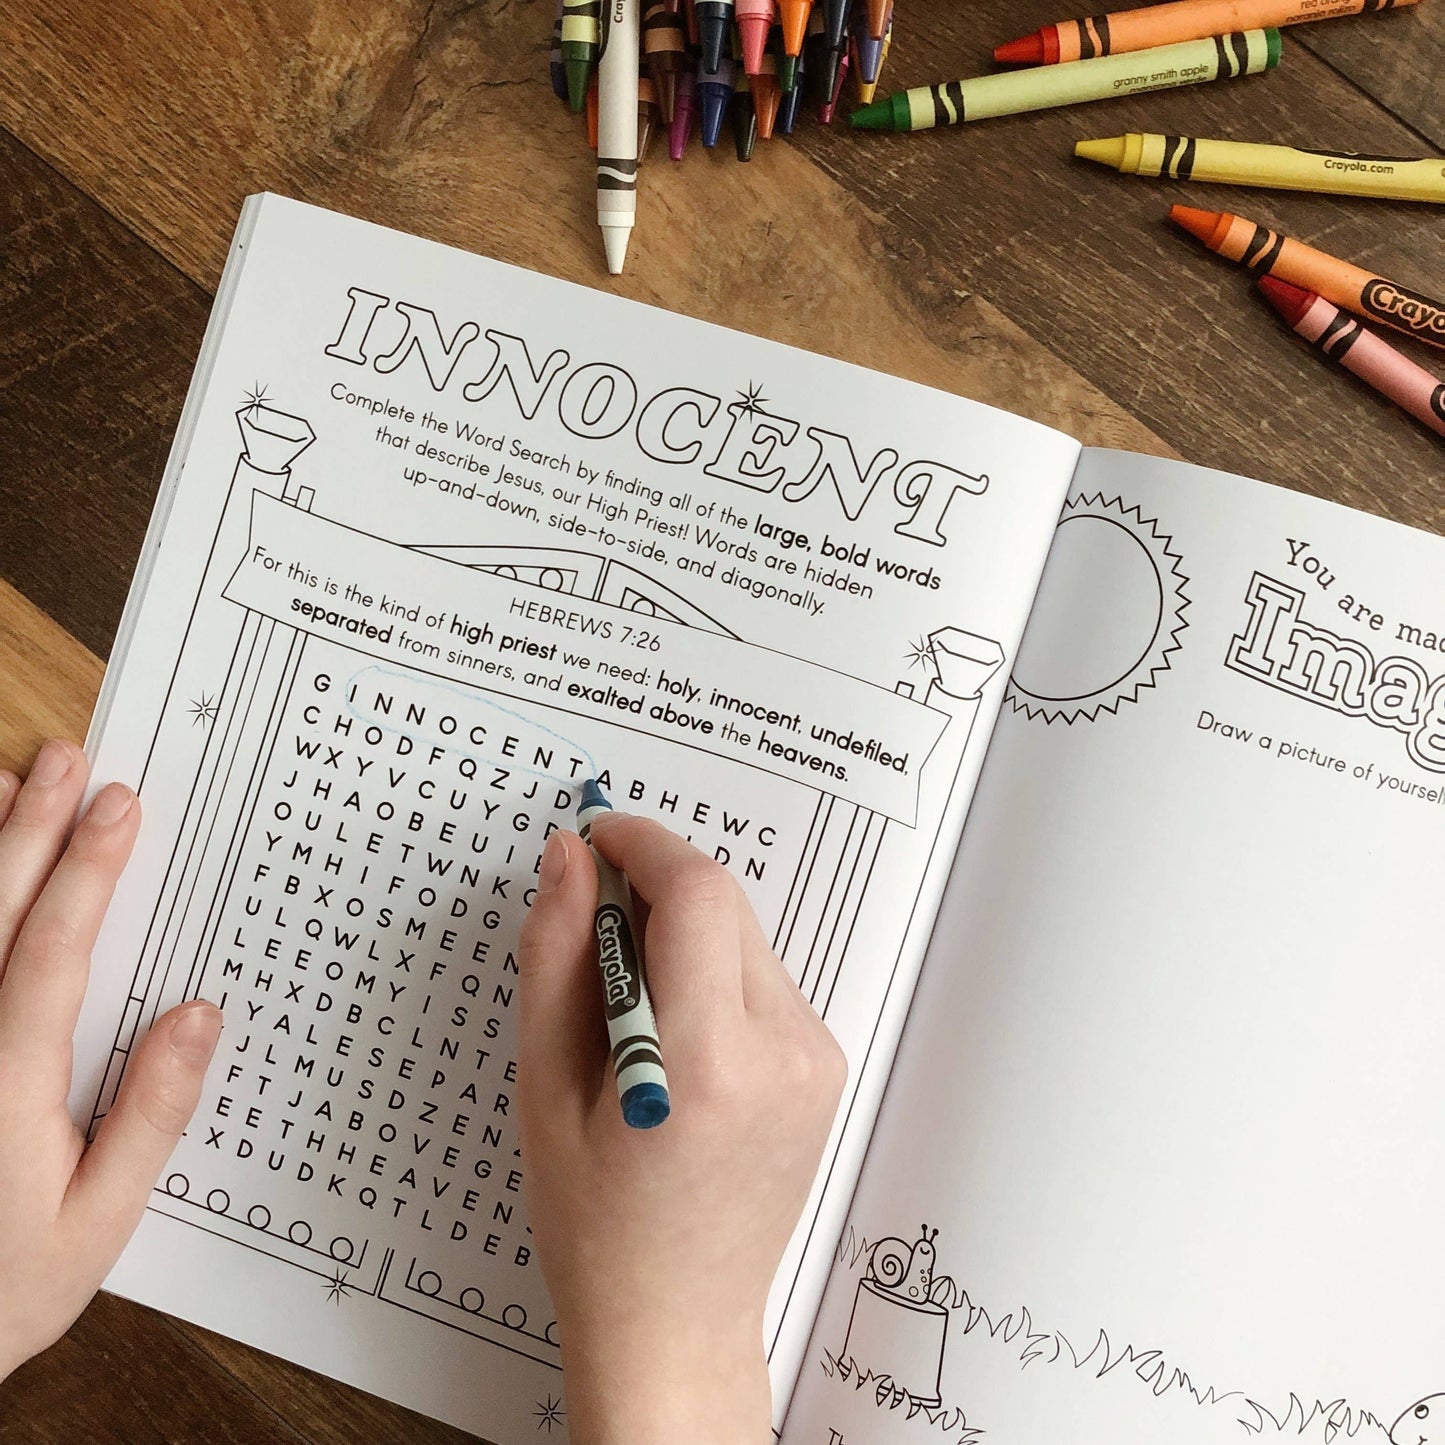 INNOCENT
Complete the Word Search by finding all of the large, bold words
that describe Jesus, our High Priest! Words are hidden
up-and-down, side-to-side, and diagonally.
HEBREWS 7:26
For this is the kind of high priest we need: holy, innocent, undefiled,
separated from sinners, and exalted above the heavens.
G I N N O C E N T A B H E W C
C H O D F Q Z J D D N
W X Y V C U Y G
J H A O B E U I
O U L E T W N K
Y M H I F O D G
F B X O S M E E N
U L Q W L X F Q N
L E E O M Y I S S
M H X D B C L N T E
I Y A L E S E P A R
J L M U S D Z E N
F T J A B O V E G E
E E T H H E A V E N
X D U D K Q T L D E B
You are
Draw a picture of
Crayola
granny smith apple
Crayola.com
red orange